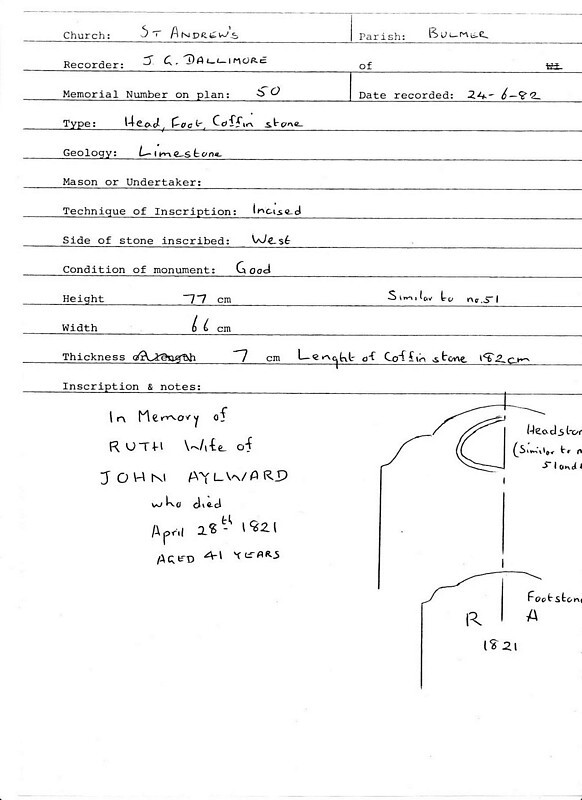 Church: ST ANDREW'S Parish: BULMER
Recorder: J. G. DALLIMORE of WI
Memorial Number on plan: 50 Date recorded: 24-6-82
Type: Head, Foot, Coffin stone
Geology: Limestone
Mason or Undertaker:
Technique of Inscription: Incised
Side of stone inscribed: West
Condition of monument: Good
Height 77 cm Similar to no.51
Width 66 cm
Thickness 7 cm Lenght of Coffin stone 182cm
Inscription & notes:
In Memory of
RUTH Wife of
JOHN AYLWARD
who died
April 28th 1821
AGED 41 YEARS
Headstor
(Similar to n
51 and
Footston
R A
1821